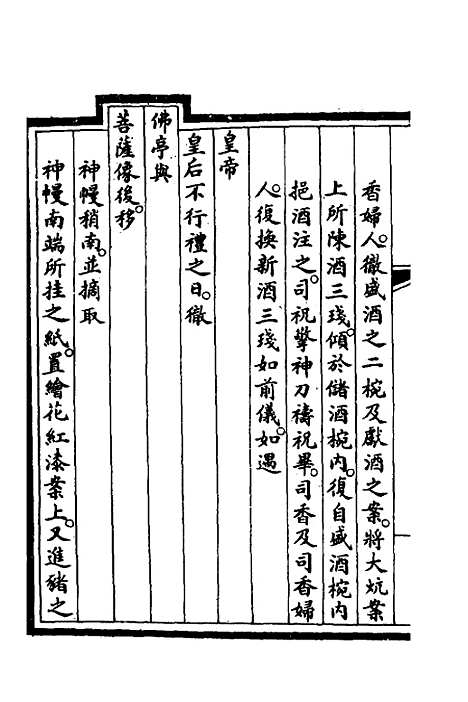 香婦人。徹盛酒之二椀及獻酒之案。將大炕案
上所陳酒三琖。傾於儲酒椀内。復自盛酒椀内
挹酒注之。司祝擎神刀禱祝畢。司香及司香婦
人。復換新酒三琖如前儀。如遇
皇帝
皇后不行禮之日。徹
佛亭與
菩薩像後。移
神幔稍南。並摘取
神幔南端所挂之紙。置繪花紅漆案上。又進豬之